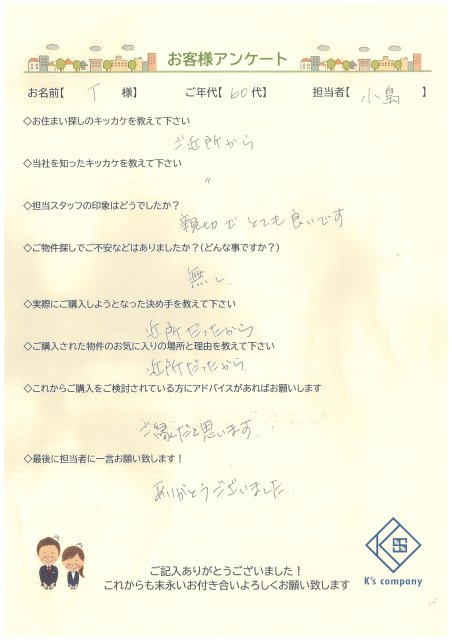 お客様アンケート
お名前【 T 様】 ご年代【 60 代】 担当者【 小島 】
◇お住まい探しのキッカケを教えて下さい
ご近所から
◇当社を知ったキッカケを教えて下さい
〃
◇担当スタッフの印象はどうでしたか？
親切で とても良いです
◇ご物件探しでご不安などはありましたか？(どんな事ですか？)
無し
◇実際にご購入しようとなった決め手を教えて下さい
近所だったから
◇ご購入された物件のお気に入りの場所と理由を教えて下さい
近所だったから
◇これからご購入をご検討されている方にアドバイスがあればお願いします
ご縁だと思います。
◇最後に担当者に一言お願い致します！
ありがとうございました。
ご記入ありがとうございました！
これからも末永いお付き合いよろしくお願い致します
K's company